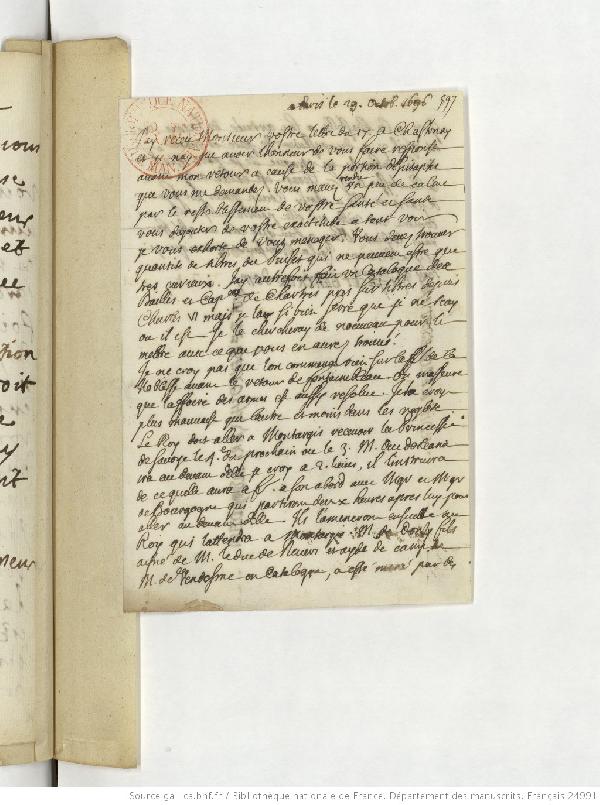 a Paris le 29. Octob. 1696
397
J'ay receu Monsieur vostre lettre du 17. a Chastenay
et je n'ay pu avoir l'honneur de vous faire response
avant mon retour a cause de la
que vous me demandez. Vous m'avez un peu de
par le restablissement de vostre santé
vous de vostre exactitude a tout voir
je vous exhorte de vous menager. Vous devez trouver
quantité de titres du qui ne peuvent estre que
tres curieux. J'ay autrefois un Catalogue des
Baillis et Cap. de Chartres pris sur titres depuis
Charles VI mais je l'ay si bien serré que je ne scay
ou il est. Je le chercheray de nouveau pour le
mettre avec ce que vous en aurez trouvé.
Je ne croy pas que l'on commence rien sur le de la
Noblesse avant le retour de fontainebleau. On m'asseure
que l'affaire des armes est aussy resolue. Je la croy
plus mauvaise que l'autre et moins dans les
Le Roy doit aller a Montargis recevoir la Princesse
de Savoye le 4. prochain ou le 3. M.
ira au devant d'elle je croy a 2. lieues, il l'instruira
de ce qu'elle aura a f. a son abord avec Mgr et Mgr
de Bourgogne qui partiront deux heures apres luy pour
aller au devant d'elle. Ils l'ameneront ensuitte au
Roy qui l'attendra a Montargis. M. de fils
ayné de M. le duc de Nevers et ayde de camp de
M. de Vendosme en Catalogne, a esté par les
ions
se
eur
et
ee
tion
oit
nt
neur
Source gallica.bnf.fr / Bibliothèque nationale de France. Département des manuscrits. Français 24991